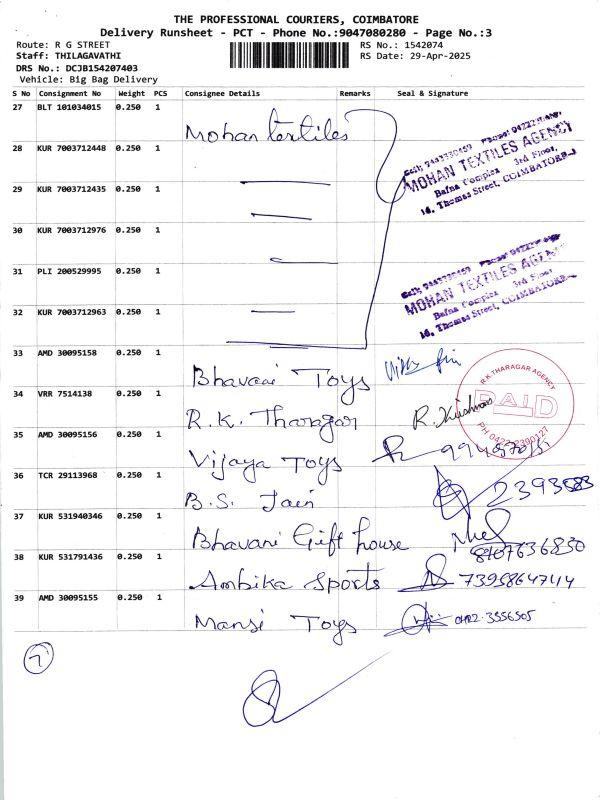 THE PROFESSIONAL COURIERS, COIMBATORE
Delivery Runsheet - PCT - Phone No.:9047080280 - Page No.:3
Route: R G STREET
Staff: THILAGAVATHI
DRS No.: DCJB154207403
Vehicle: Big Bag Delivery
RS No.: 1542074
RS Date: 29-Apr-2025
S No Consignment No Weight PCS Consignee Details Remarks Seal & Signature
27 BLT 101034015 0.250 1 Mohan textiles
MOHAN TEXTILES AGENCY
Bafna Complex 3rd Floor,
16, Thomas Street, COIMBATORE
28 KUR 7003712448 0.250 1
29 KUR 7003712435 0.250 1
30 KUR 7003712976 0.250 1
31 PLI 200529995 0.250 1
MOHAN TEXTILES AGENCY
Bafna Complex 3rd Floor
16, Thomas Street, COIMBATORE
32 KUR 7003712963 0.250 1
33 AMD 30095158 0.250 1 Bhavani Toys
34 VRR 7514138 0.250 1 R.K. Tharagar
R.K.THARAGAR AGENCY
PAID
PH 0422 2390127
35 AMD 30095156 0.250 1 Vijaya Toys
36 TCR 29113968 0.250 1 B.S. Jain
37 KUR 531940346 0.250 1 Bhavani Gift house
8107636830
38 KUR 531791436 0.250 1 Ambika Sports
39 AMD 30095155 0.250 1 Mansi Toys
7